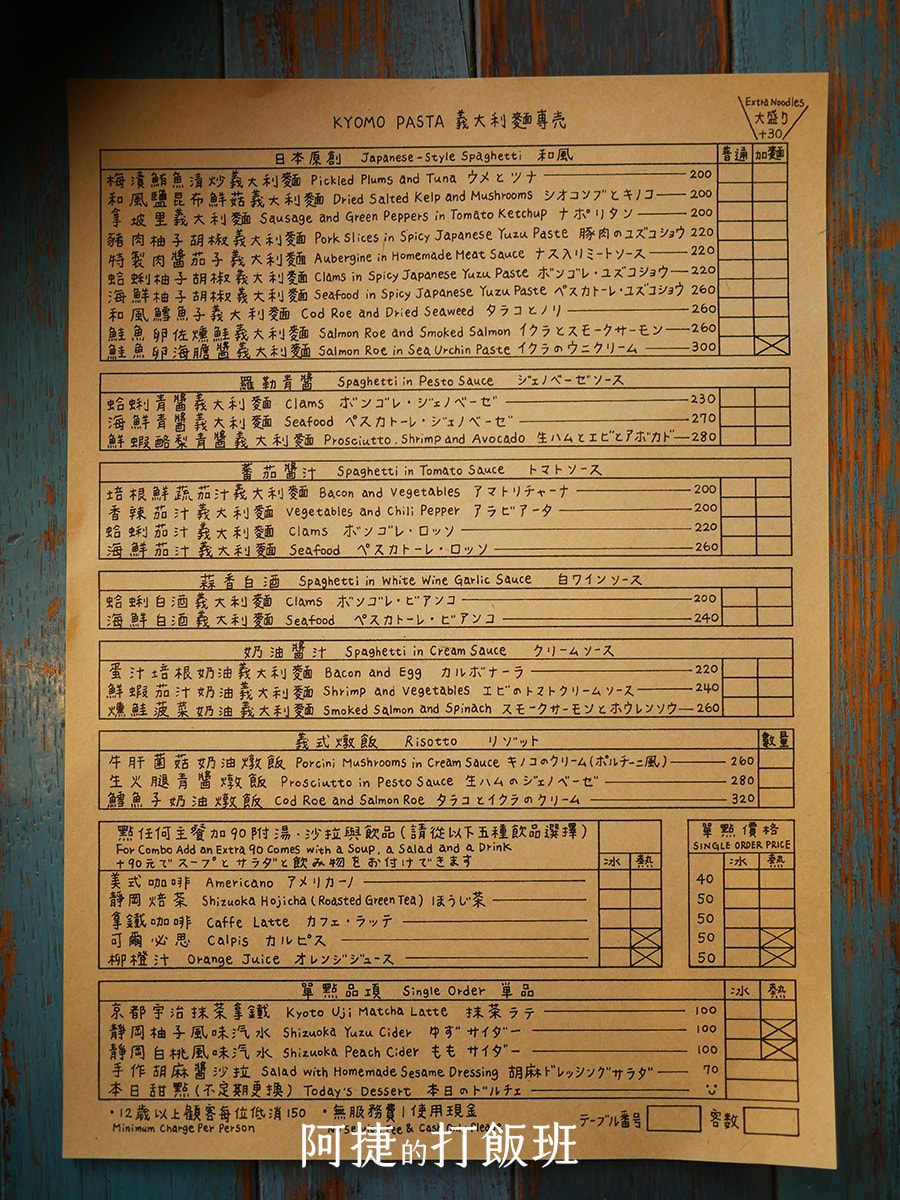 Extra Noodles
大盛り
+30
KYOMO PASTA 義大利麵專売
日本原創 Japanese-Style Spaghetti 和風 普通 加麵
梅漬鮪魚清炒義大利麵 Pickled Plums and Tuna ウメとツナ 200
和風鹽昆布鮮菇義大利麵 Dried Salted Kelp and Mushrooms シオコンブとキノコ 200
拿坡里義大利麵 Sausage and Green Peppers in Tomato Ketchup ナポリタン 200
豬肉柚子胡椒義大利麵 Pork Slices in Spicy Japanese Yuzu Paste 豚肉のユズコショウ 220
特製肉醬茄子義大利麵 Aubergine in Homemade Meat Sauce ナス入りミートソース 220
蛤蜊柚子胡椒義大利麵 Clams in Spicy Japanese Yuzu Paste ボンゴレ・ユズコショウ 220
海鮮柚子胡椒義大利麵 Seafood in Spicy Japanese Yuzu Paste ペスカトーレ・ユズコショウ 260
和風鱈魚子義大利麵 Cod Roe and Dried Seaweed タラコとノリ 260
鮭魚卵佐燻鮭義大利麵 Salmon Roe and Smoked Salmon イクラとスモークサーモン 260
鮭魚卵海膽醬義大利麵 Salmon Roe in Sea Urchin Paste イクラのウニクリーム 300
羅勒青醬 Spaghetti in Pesto Sauce ジェノベーゼソース
蛤蜊青醬義大利麵 Clams ボンゴレ・ジェノベーゼ 230
海鮮青醬義大利麵 Seafood ペスカトーレ・ジェノベーゼ 270
鮮蝦酪梨青醬義大利麵 Prosciutto, Shrimp and Avocado 生ハムとエビとアボカド 280
蕃茄醬汁 Spaghetti in Tomato Sauce トマトソース
培根鮮蔬茄汁義大利麵 Bacon and Vegetables アマトリチャーナ 200
香辣茄汁義大利麵 Vegetables and Chili Pepper アラビアータ 200
蛤蜊茄汁義大利麵 Clams ボンゴレ・ロッソ 220
海鮮茄汁義大利麵 Seafood ペスカトーレ・ロッソ 260
蒜香白酒 Spaghetti in White Wine Garlic Sauce 白ワインソース
蛤蜊白酒義大利麵 Clams ボンゴレ・ビアンコ 200
海鮮白酒義大利麵 Seafood ペスカトーレ・ビアンコ 240
奶油醬汁 Spaghetti in Cream Sauce クリームソース
蛋汁培根奶油義大利麵 Bacon and Egg カルボナーラ 220
鮮蝦茄汁奶油義大利麵 Shrimp and Vegetables エビのトマトクリームソース 240
燻鮭菠菜奶油義大利麵 Smoked Salmon and Spinach スモークサーモンとホウレンソウ 260
義式燉飯 Risotto リゾット 數量
牛肝菌菇奶油燉飯 Porcini Mushrooms in Cream Sauce キノコのクリーム(ポルチーニ風) 260
生火腿青醬燉飯 Prosciutto in Pesto Sauce 生ハムのジェノベーゼ 280
鱈魚子奶油燉飯 Cod Roe and Salmon Roe タラコとイクラのクリーム 320
點任何主餐加90附湯、沙拉與飲品(請從以下五種飲品選擇)
For Combo Add an Extra 90 Comes with a Soup, a Salad and a Drink
+90元でスープとサラダと飲み物をお付けできます 冰 熱
單點價格
SINGLE ORDER PRICE
冰 熱
美式咖啡 Americano アメリカーノ 40
靜岡焙茶 Shizuoka Hojicha (Roasted Green Tea) ほうじ茶 50
拿鐵咖啡 Caffe Latte カフェ・ラッテ 50
可爾必思 Calpis カルピス 50
柳橙汁 Orange Juice オレンジジュース 50
單點品項 Single Order 単品 冰 熱
京都宇治抹茶拿鐵 Kyoto Uji Matcha Latte 抹茶ラテ 100
靜岡柚子風味汽水 Shizuoka Yuzu Cider ゆずサイダー 100
靜岡白桃風味汽水 Shizuoka Peach Cider ももサイダー 100
手作胡麻醬沙拉 Salad with Homemade Sesame Dressing 胡麻ドレッシングサラダ 70
本日甜點(不定期更換) Today's Dessert 本日のドルチェ
・12歲以上顧客每位低消150 ・無服務費|使用現金
Minimum Charge Per Person & Cash
テーブル番号 客数
阿捷的打飯班